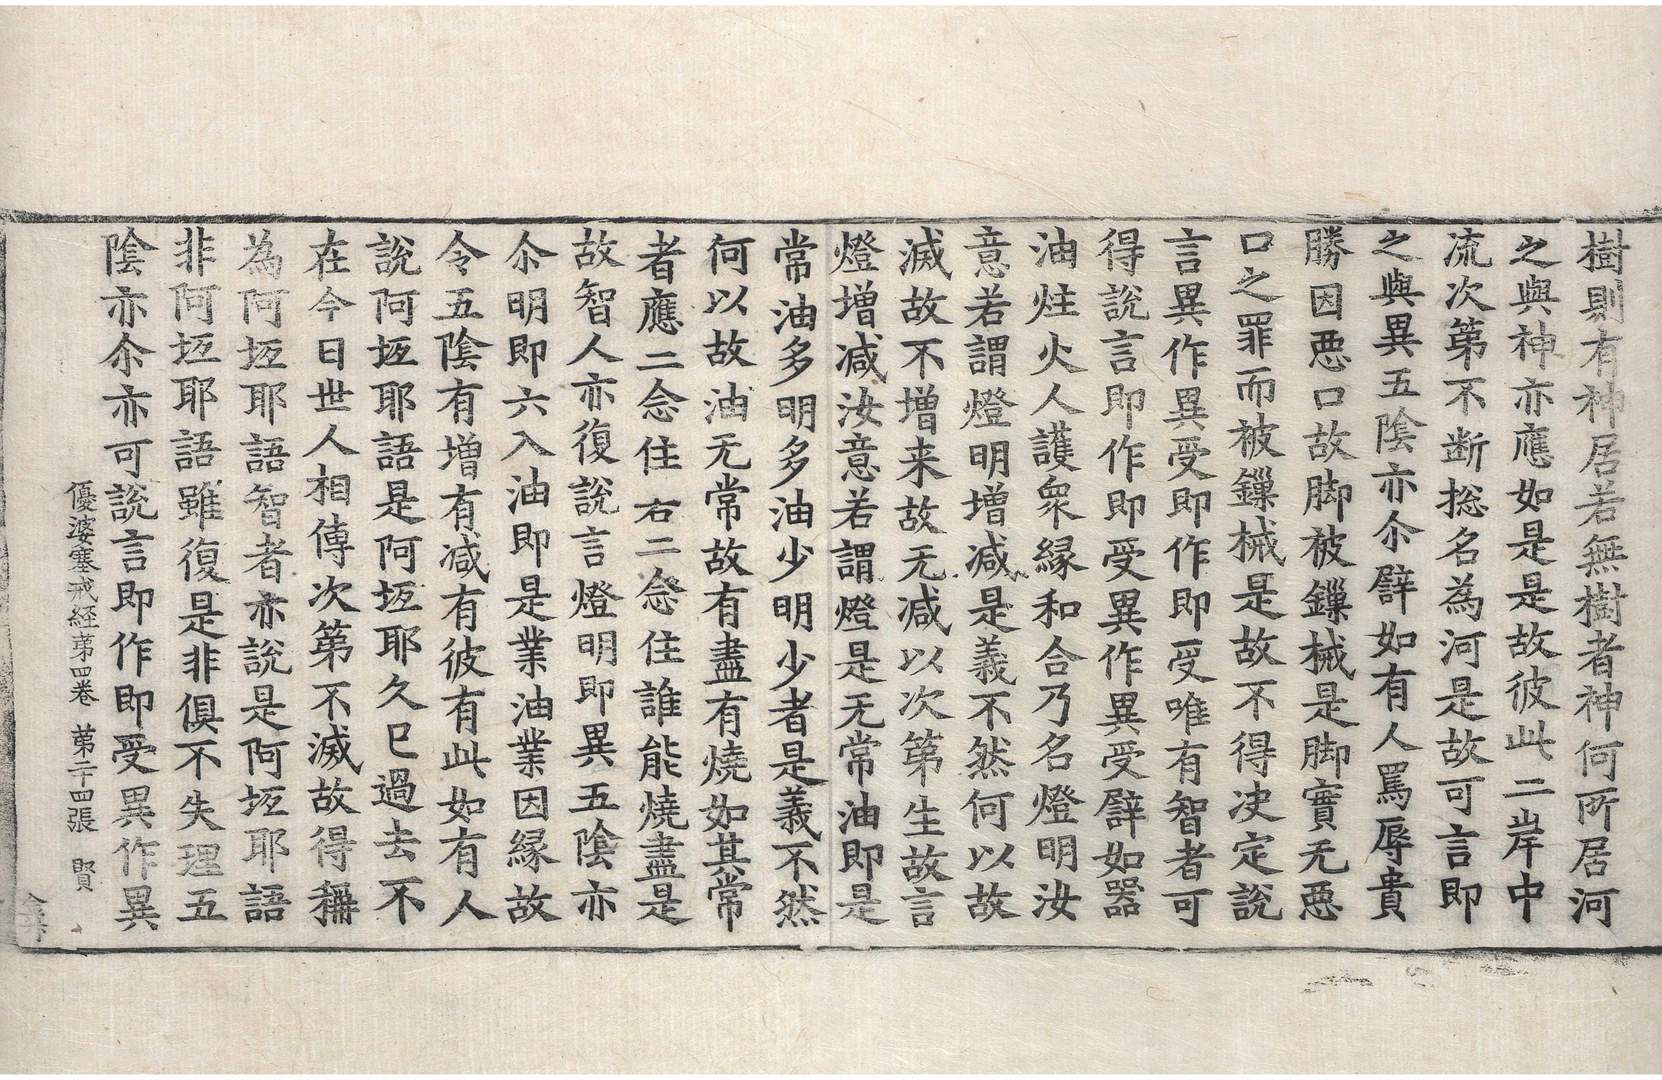 樹則有神居若無樹者神何所居河
之與神亦應如是是故彼此二岸中
流次第不断捴名為河是故可言即
之與異五陰亦尒譬如有人罵辱貴
勝因惡口故脚被鏁械是脚實无惡
口之罪而被鏁械是故不得決定說
言異作異受即作即受唯有智者可
得說言即作即受異作異受譬如器
油炷火人護衆縁和合乃名燈明汝
意若謂燈明增减是義不然何以故
滅故不增来故无减以次第生故言
燈增减汝意若謂燈是无常油即是
常油多明多油少明少者是義不然
何以故油无常故有盡有燒如其常
者應二念住右二念住誰能燒盡是
故智人亦復說言燈明即異五陰亦
尒明即六入油即是業油業因縁故
令五陰有增有减有彼有此如有人
說阿坘耶語是阿坘耶久已過去不
在今日世人相傳次第不滅故得稱
為阿坘耶語智者亦說是阿坘耶語
非阿坘耶語雖復是非俱不失理五
陰亦尒亦可說言即作即受異作異
優婆塞戒経第四卷 第二十四張 賢